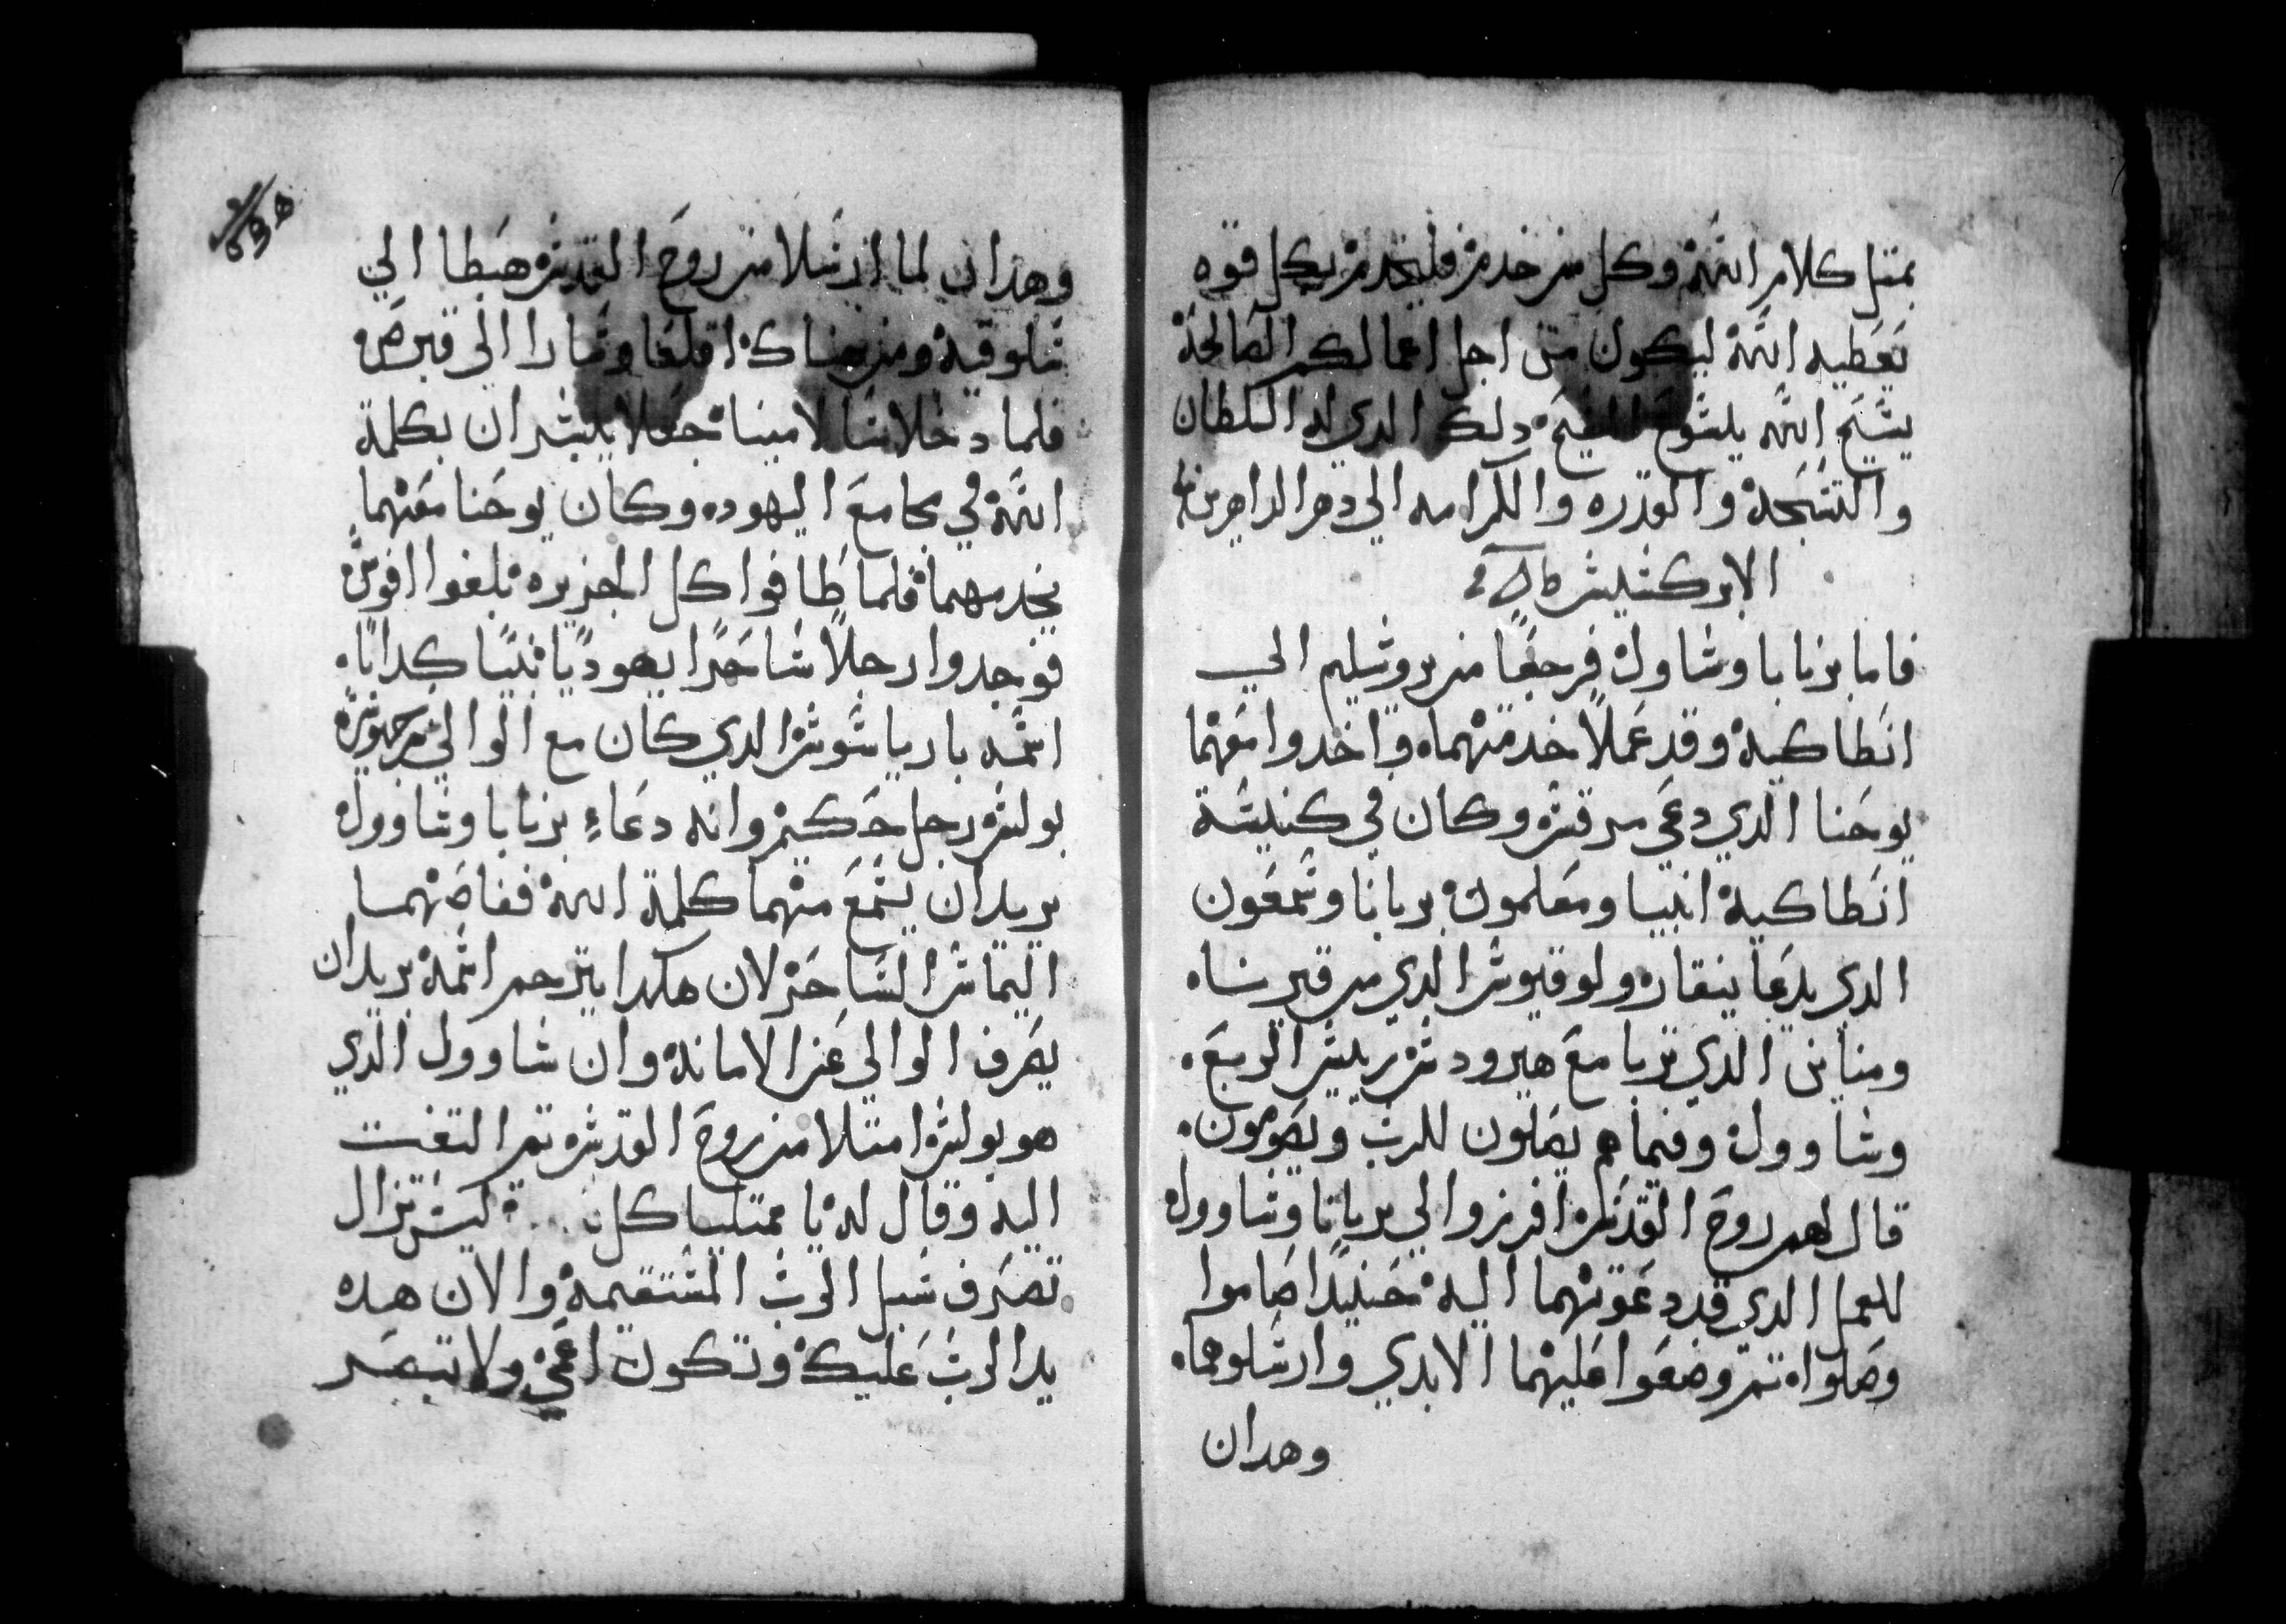 بمتل كلام الله وكل من خدم فليخدم بكل قوه
يعطيه الله ليكون من اجل اعمالكم الصالحة
يسبح الله يسوع المسيح دلك الدي له السلطان
والتسبحة والقدره والكرامه الي دهر الداهرين
الابركسيس
فاما برنابا وشاول فرجعا من يروشليم الي
انطاكية وقد عملا خدمتهما واخدوا معهما
يوحنا الدي دعي مرقس وكان في كنيسة
انطاكية انبيا ومعلمون برنابا وسمعون
الدي يدعا ينقار ولوقيوس الدي من قيرينا
ومناين الدي تربا مع هيرودس رييس الربع
وشاوول وفيما هم يصلون للرب ويصومون
قال لهم روح القدس افرزوا لي برنابا وشاوول
للعمل الدي قد دعوتهما اليه حنيدا صاموا
وصلوا تم وضعوا عليهما الايدي وارسلوهما
وهدان
وهدان لما ارسلا من روح القدس هبطا الي
سلوقية ومن هناك اقلعا وسارا الي قبرص
فلما دخلا سالامينا جعلا يبشران بكلمة
الله في مجامع اليهود وكان يوحنا معهما
يخدمهما فلما طافوا كل الجزيره بلغوا افوس
فوجدوا رجلا ساحرا يهوديا نبيا كدابا
اسمه بارياسوس الدي كان مع الوالي سرجيوس
بولس رجل حكيم وانه دعاء برنابا وشاوول
يريد ان يسمع منهما كلمة الله فقاصهما
اليماس الساحر لان هكدا يترجم اسمه يريد ان
يصرف الوالي عن الامانة وان شاوول الدي
هو بولس امتلا من روح القدس تم التفت
اليه وقال له يا ممتليا كل ليس تزال
تصرف سبل الرب المستقيمة والان هده
يد الرب عليك وتكون اعمي ولا تبصر